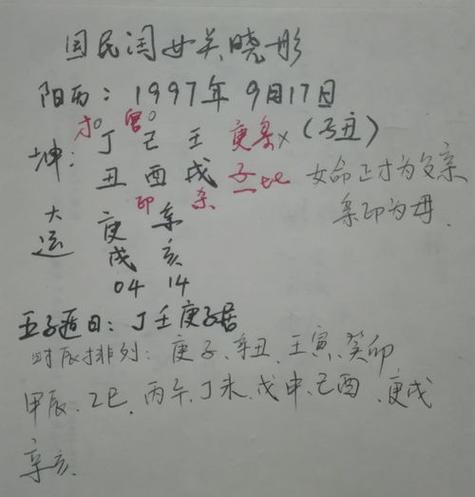 国民闺女关晓彤
阳历：1997年9月17日
才。官。
坤：丁己壬庚枭×（子丑）
丑酉戌子比 女命正才为父亲
印 杀 枭印为母.
大运 庚辛
戌亥
04 14
五子遁日：丁壬庚子居
时辰排列：庚子、辛丑、壬寅、癸卯
甲辰、乙巳、丙午、丁未、戊申、己酉、庚戌
辛亥.